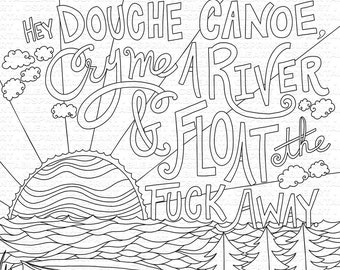 HEY DOUCHE CANOE,
Cry me A RIVER
& FLOAT the
FUCK AWAY.